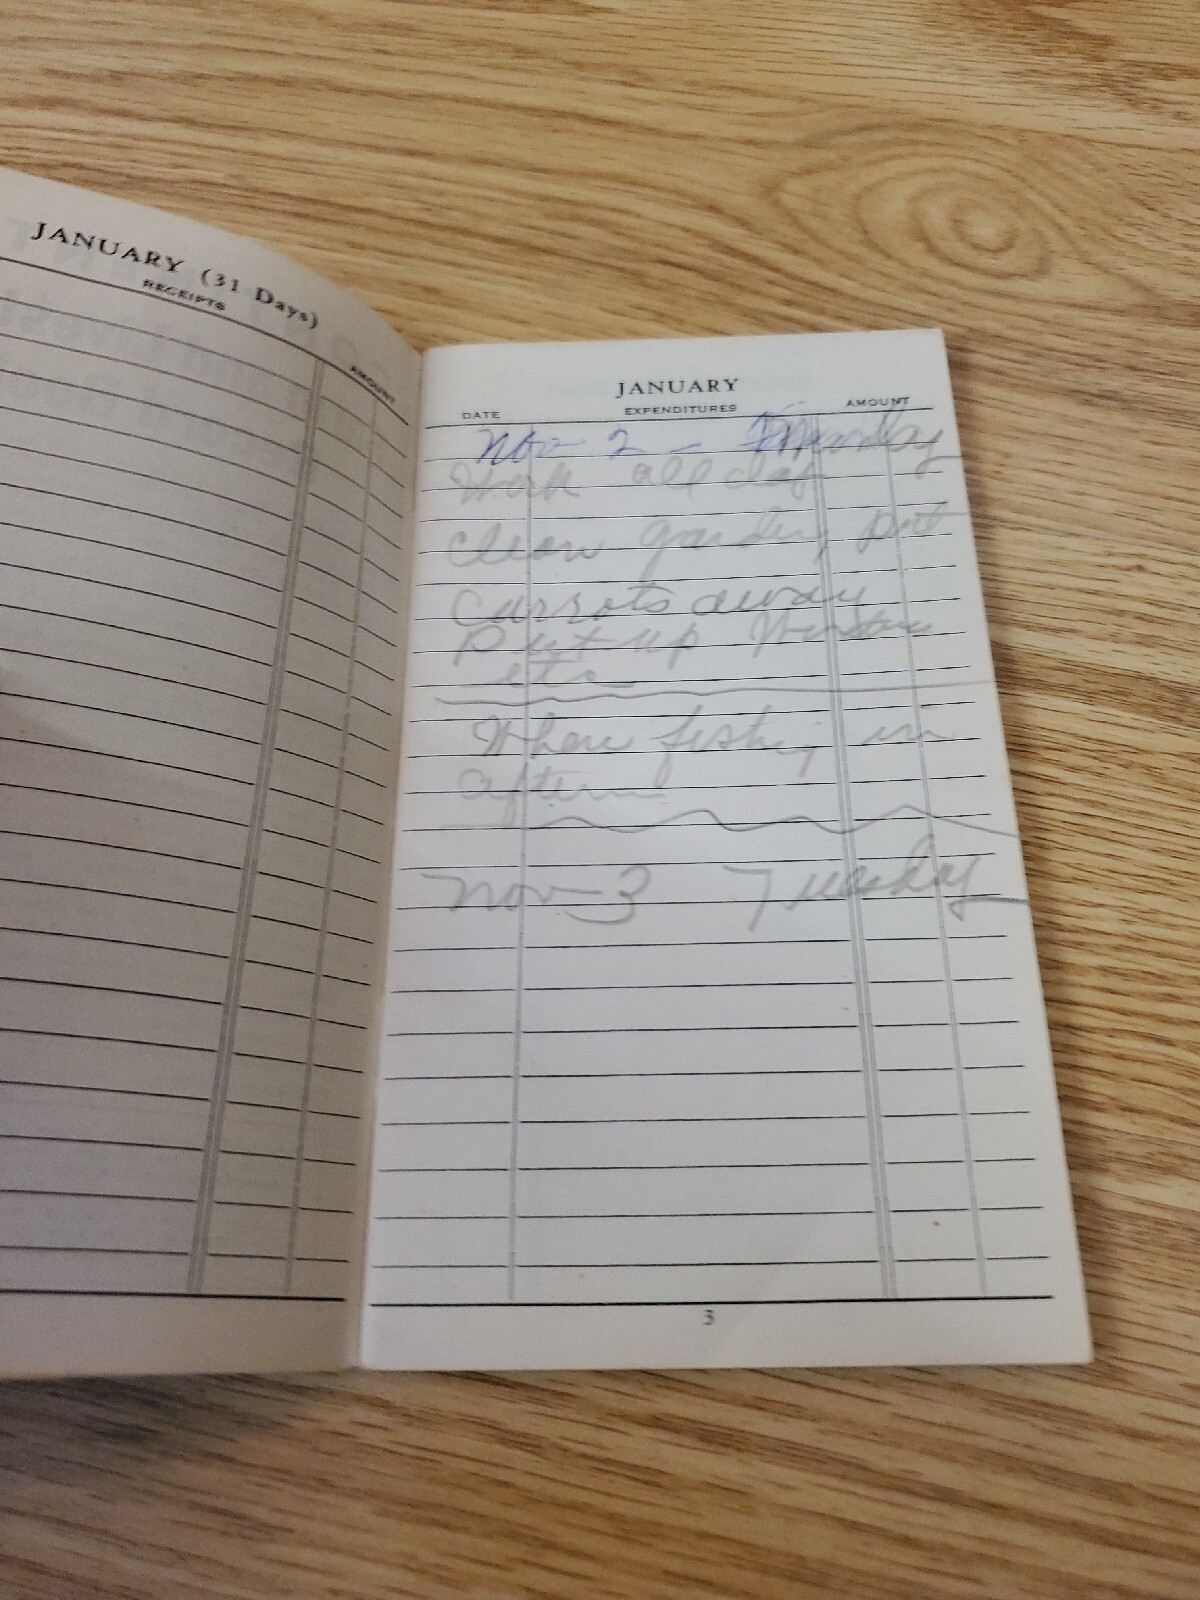 JANUARY (31 Days)
RECEIPTS
AMOUNT
JANUARY
DATE EXPENDITURES AMOUNT
Nov 2 - Monday
Work all day
clean garden, put
carrots away
Put up
etc
When fishing in
aftern
Nov 3 Tuesday
3